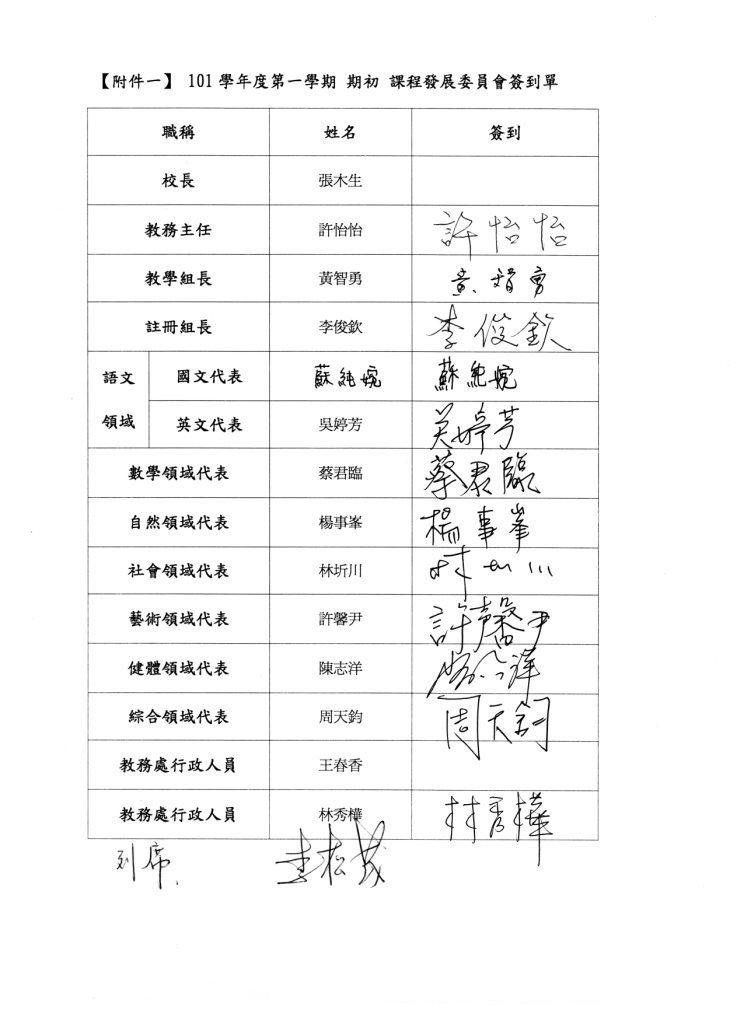 【附件一】 101 學年度第一學期 期初 課程發展委員會簽到單
職稱 姓名 簽到
校長 張木生
教務主任 許怡怡 許怡怡
教學組長 黃智勇 黃智勇
註冊組長 李俊欽 李俊欽
語文領域 國文代表 蘇純婉 蘇純婉
英文代表 吳婷芳 吳婷芳
數學領域代表 蔡君臨 蔡君臨
自然領域代表 楊事峯 楊事峯
社會領域代表 林圻川 林圻川
藝術領域代表 許馨尹 許馨尹
健體領域代表 陳志洋
綜合領域代表 周天鈞 周天鈞
教務處行政人員 王春香
教務處行政人員 林秀樺 林秀樺
列席 李松茂